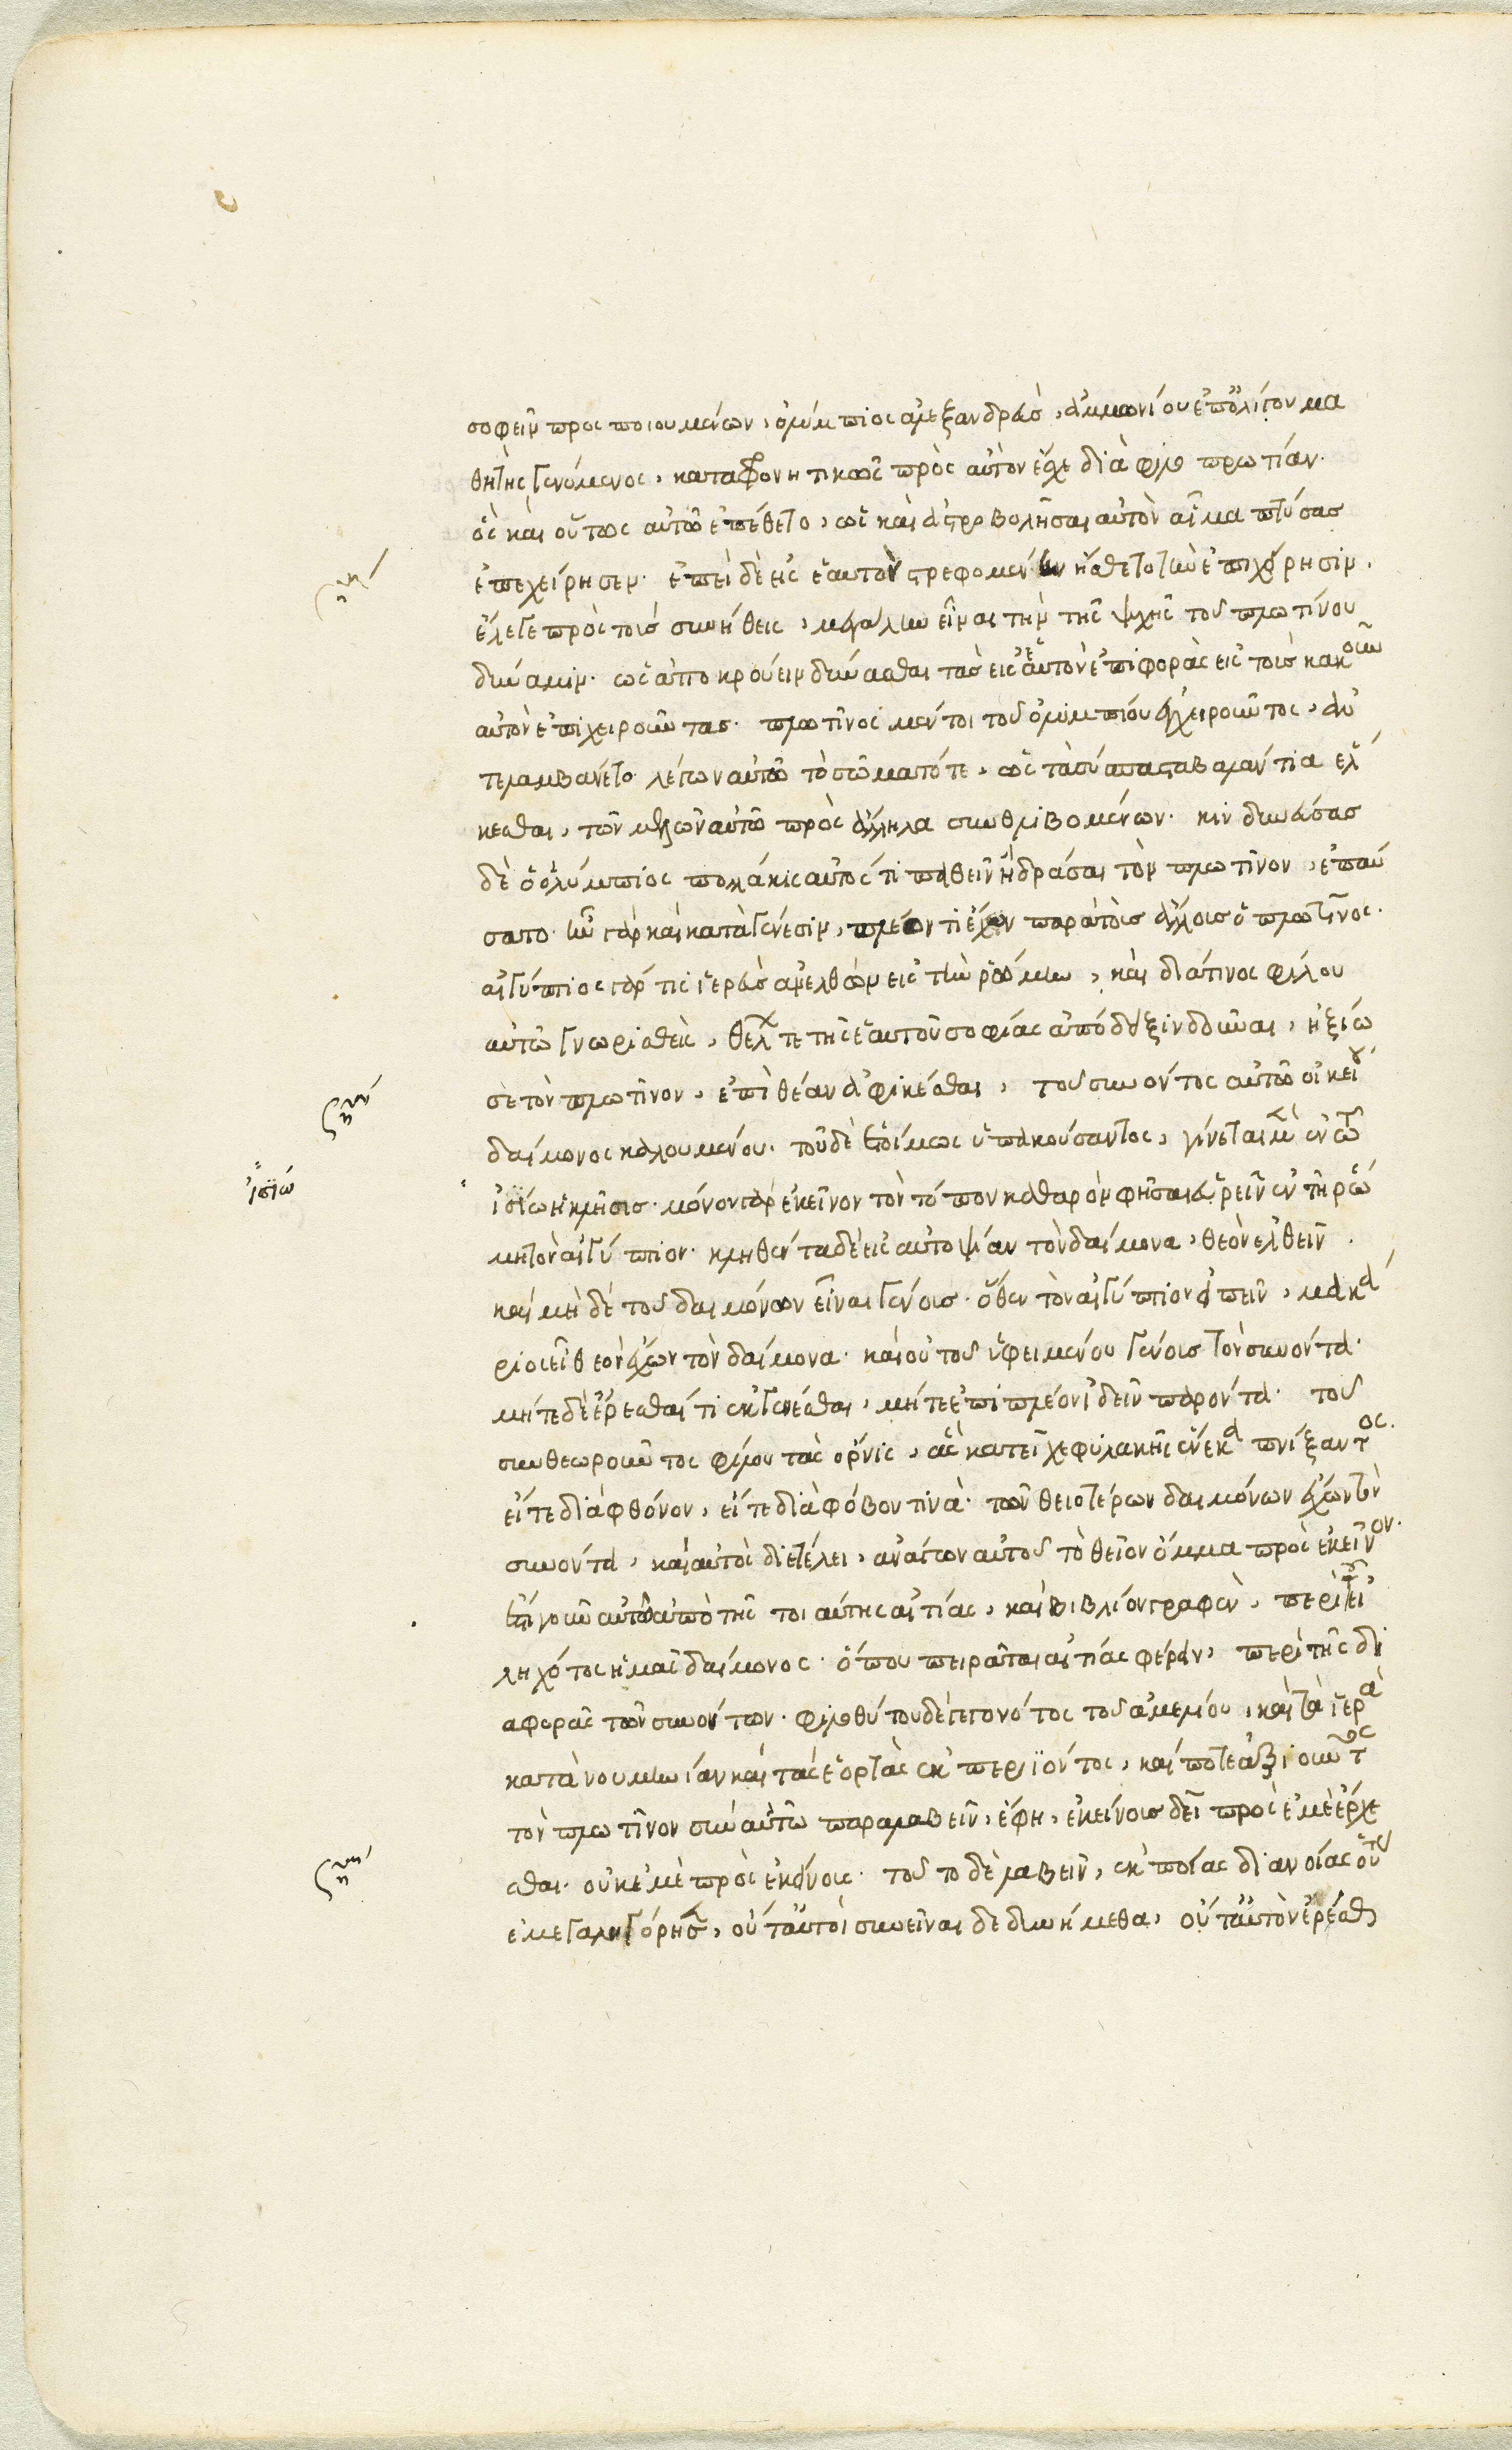 σοφεῖν προσποιουμένων, ὀλύμπιος ἀλεξανδρεὺς, ἀμμωνίου ἐπ' ὀλίγον μα
θητὴς γενόμενος, καταφρονητικῶς πρὸς αὐτὸν ἔσχε διὰ φιλοπρωτίαν.
ὃς καὶ οὕτως αὐτῶ ἐπέθετο, ὡς καὶ ἀστροβολῆσαι αὐτὸν αἷμα πτύσας
ἐπεχείρησεν. ἐπεὶ δὲ εἰς ἑαυτὸν στρεφομένην ἤσθετο τὴν ἐπιχείρησιν.
ἔλεγε πρὸς τοὺς συνήθεις, μεγάλην εἶναι τὴν τῆς ψυχῆς τοῦ πλωτίνου
δύναμιν. ὡς ἀποκρούειν δύνασθαι τὰς εἰς ἑαυτὸν ἐπιφορὰς εἰς τοὺς κακοῦν
αὐτὸν ἐπιχειροῦντας. πλωτῖνος μέντοι τοῦ ὀλυμπίου ἐγχειροῦντος, ἀν
τελαμβάνετο λέγων αὐτῶ τὸ σῶμα τότε, ὡς τὰ σύσπαστα βαλάντια ἕλ
κεσθαι, τῶν μελῶν αὐτῶ πρὸς ἄλληλα συνθλιβομένων. κινδυνεύσας
δὲ ὁ ὀλύμπιος πολλάκις αὐτός τι παθεῖν ἢ δρᾶσαι τὸν πλωτῖνον, ἐπαύ
σατο. ἦν γὰρ καὶ κατὰ γένεσιν, πλέον τι ἔχων παρὰ τοὺς ἄλλους ὁ πλωτῖνος.
αἰγύπτιος γάρ τις ἱερεὺς ἀνελθὼν εἰς τὴν ῥώμην, καὶ διά τινος φίλου
αὐτῶ γνωρισθεὶς, θέλων τε τῆς ἑαυτοῦ σοφίας ἀπόδειξιν δοῦναι, ἠξίω
σε τὸν πλωτῖνον, ἐπὶ θέαν ἀφικέσθαι, τοῦ συνόντος αὐτῶ οἰκείου
δαίμονος καλουμένου. τοῦ δὲ ἑτοίμως ὑπακούσαντος, γίνεται μὲν ἐν τῶ
ἰσίω ἡ κλῆσις. μόνον γὰρ ἐκεῖνον τὸν τόπον καθαρὸν φῆσαι εὑρεῖν ἐν τῆ ῥώ
μη τὸν αἰγύπτιον. κληθέντα δὲ εἰς αὐτοψίαν τὸν δαίμονα, θεὸν ἐλθεῖν.
καὶ μὴ δὲ τοῦ δαιμόνων εἶναι γένους. ὅθεν τὸν αἰγύπτιον εἰπεῖν, μακά
ριος εἶ θεὸν ἔχων τὸν δαίμονα. καὶ οὐ τοῦ ὑφειμένου γένους τὸν συνόντα.
μήτε δὲ ἐρέσθαί τι ἐκγενέσθαι, μήτε ἐπιπλέον ἰδεῖν παρόντα. τοῦ
συνθεωροῦντος φίλου τὰς ὄρνις, ἃς κατεῖχε φυλακῆς ἕνεκα πνίξαντος.
εἴτε διὰ φθόνον, εἴτε διὰ φόβον τινὰ. τῶν θειοτέρων δαιμόνων ἔχων τὸν
συνόντα, καὶ αὐτὸς διετέλει, ἀνάγων αὐτοῦ τὸ θεῖον ὄμμα πρὸς ἐκεῖνον.
ἔστι γοῦν αὐτῶ ἀπὸ τῆς τοιαύτης αἰτίας, καὶ βιβλίον γραφὲν, περὶ τοῦ εἰ
ληχότος ἡμᾶς δαίμονος. ὅπου πειρᾶται αἰτίας φέρειν, περὶ τῆς δι
αφορᾶς τῶν συνόντων. φιλοθύτου δὲ γεγονότος τοῦ ἀμελίου, καὶ τὰ ἱερὰ
κατὰ νουμηνίαν καὶ τὰς ἑορτὰς ἐκπεριϊόντος, καί ποτε ἀξιοῦντος
τὸν πλωτῖνον σὺν αὐτῶ παραλαβεῖν, ἔφη, ἐκείνους δεῖ πρὸς ἐμὲ ἔρχε
σθαι. οὐκ ἐμὲ πρὸς ἐκείνους. τοῦτο δὲ λαβεῖν, ἐκ ποίας διανοίας οὕτως
ἐμεγαληγόρησεν, οὔτ' αὐτοὶ συνεῖναι δεδυνήμεθα, οὔτ' αὐτὸν ἐρέσθαι
ἰσίω